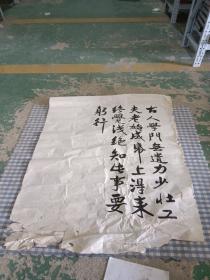 古人學問無遺力少壯工
夫老始成帋上淂来
終覺淺絕知此事要
躬行